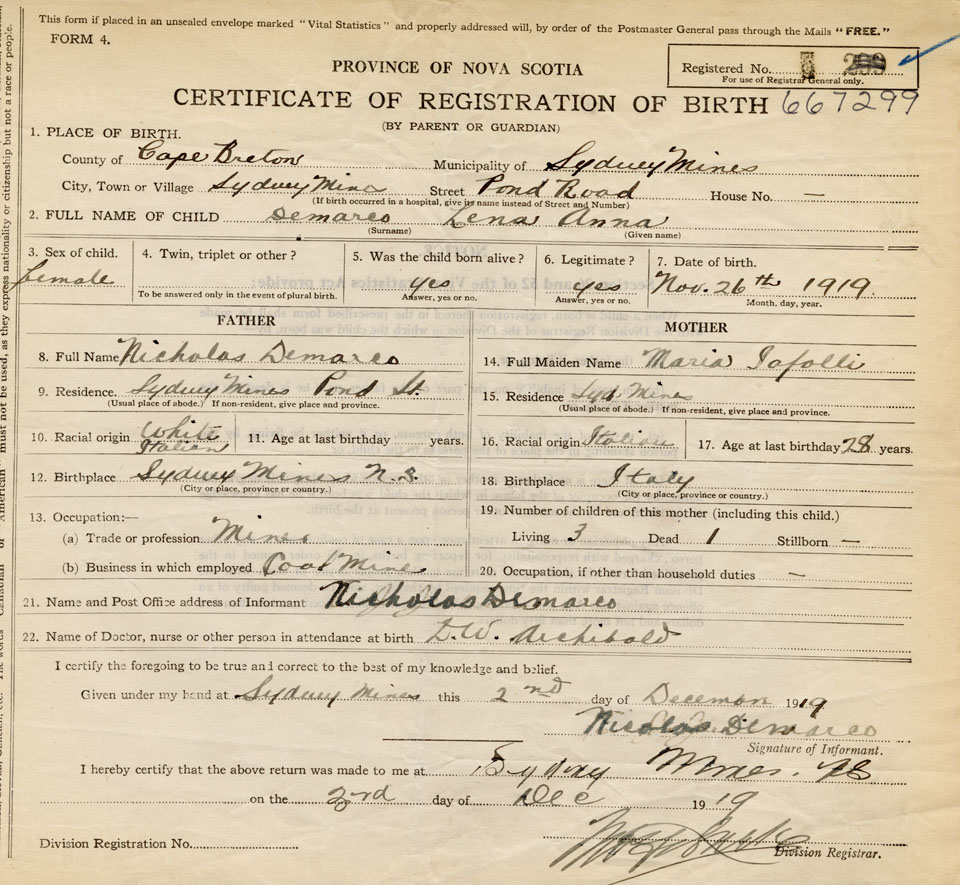 This form if placed in an unsealed envelope marked "Vital Statistics" and properly addressed will, by order of the Postmaster General pass through the Mails "FREE."
FORM 4.
Registered No.
For use of Registrar General only.
PROVINCE OF NOVA SCOTIA
CERTIFICATE OF REGISTRATION OF BIRTH 667299
(BY PARENT OR GUARDIAN)
1. PLACE OF BIRTH.
County of Cape Breton Municipality of Sydney Mines
City, Town or Village Sydney Mines Street Pond Road House No. —
(If birth occurred in a hospital, give its name instead of Street and Number)
2. FULL NAME OF CHILD Demarco Lena Anna
(Surname) (Given name)
3. Sex of child. 4. Twin, triplet or other? 5. Was the child born alive? 6. Legitimate? 7. Date of birth.
female yes yes Nov. 26th 1919.
To be answered only in the event of plural birth. Answer, yes or no. Answer, yes or no. Month, day, year.
FATHER MOTHER
8. Full Name Nicholas Demarco 14. Full Maiden Name Maria Iafolli
9. Residence. Sydney Mines Pond St. 15. Residence Syd Mines
(Usual place of abode.) If non-resident, give place and province. (Usual place of abode.) If non-resident, give place and province.
10. Racial origin White Italian 11. Age at last birthday years. 16. Racial origin Italian 17. Age at last birthday 28 years.
12. Birthplace Sydney Mines N.S. 18. Birthplace Italy
(City or place, province or country.) (City or place, province or country.)
13. Occupation:— 19. Number of children of this mother (including this child.)
(a) Trade or profession Miner Living 3 Dead 1 Stillborn —
(b) Business in which employed Coal Mine 20. Occupation, if other than household duties —
21. Name and Post Office address of Informant Nicholas Demarco
22. Name of Doctor, nurse or other person in attendance at birth Archibald
I certify the foregoing to be true and correct to the best of my knowledge and belief.
Given under my hand at Sydney Mines this 2nd day of Decemon 1919
Nicolas Demarco
Signature of Informant.
I hereby certify that the above return was made to me at Sydney Mines. NS
on the 23rd day of Dec 1919
Division Registration No. Division Registrar.